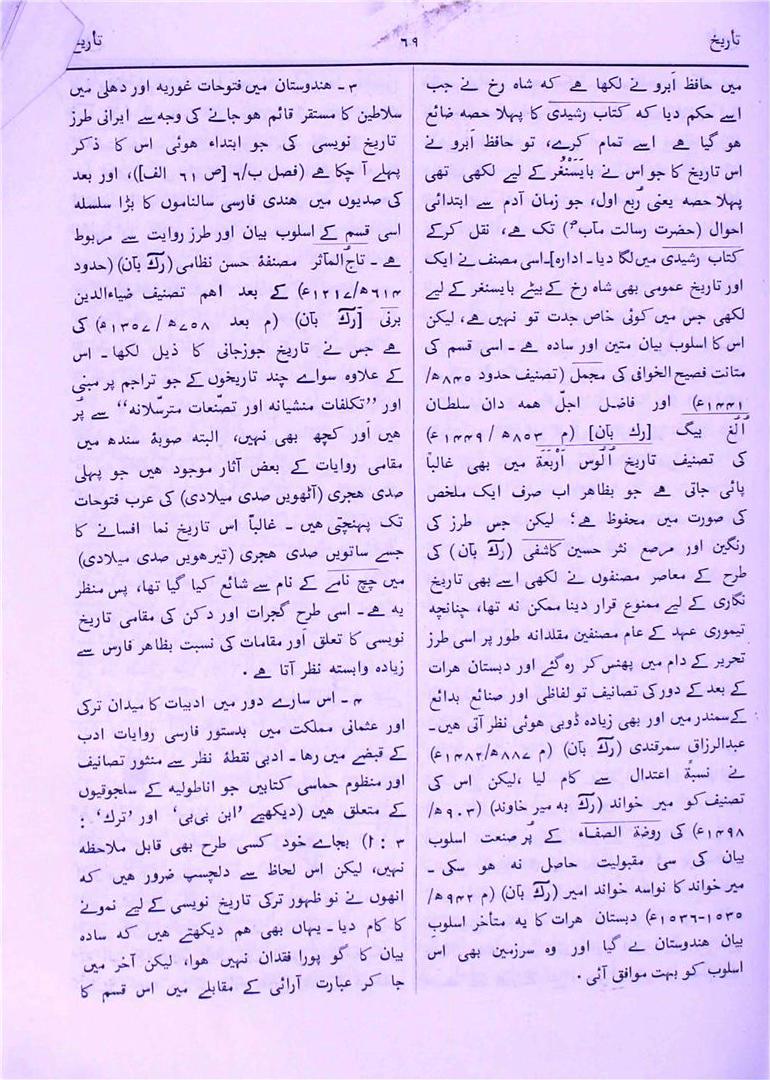 تأریخ
٦٩
تأریخ
میں حافظ اَبرو نے لکھا ہے کہ شاہ رخ نے جب
اسے حکم دیا کہ کتاب رشیدی کا پہلا حصہ ضائع
ہو گیا ہے اسے تمام کرے، تو حافظ اَبرو نے
اس تاریخ کا جو اس نے بایسَنْغُر کے لیے لکھی تھی
پہلا حصہ یعنی رُبع اول، جو زمان آدم سے ابتدائی
احوال (حضرت رسالت مآبؐ) تک ہے، نقل کرکے
کتاب رشیدی میں لگا دیا۔ ادارہ]۔ اسی مصنف نے ایک
اور تاریخ عمومی بھی شاہ رخ کے بیٹے بایسنغر کے لیے
لکھی جس میں کوئی خاص جدت تو نہیں ہے، لیکن
اس کا اسلوب بیان متین اور سادہ ہے۔ اسی قسم کی
متانت فصیح الخوافی کی مجمل (تصنیف حدود ٨٤٥ھ/
١٤٤١ع) اور فاضل اجلّ ہمہ دان سلطان
اُلُغ بیگ [رك بآن] (م ٨٥٣ھ / ١٤٤٩ع)
کی تصنیف تاریخ اُلُوس اَرْبَعَۃ میں بھی غالباً
پائی جاتی ہے جو بظاہر اب صرف ایک ملخص
کی صورت میں محفوظ ہے؛ لیکن جس طرز کی
رنگین اور مرصع نثر حسین کاشفی (رك بآن) کی
طرح کے معاصر مصنفوں نے لکھی اسے بھی تاریخ
نگاری کے لیے ممنوع قرار دینا ممکن نہ تھا، چنانچہ
تیموری عہد کے عام مصنفین مقلدانہ طور پر اسی طرز
تحریر کے دام میں پھنس کر رہ گئے اور دبستان ہرات
کے بعد کے دور کی تصانیف تو لفاظی اور صنائع بدائع
کے سمندر میں اور بھی زیادہ ڈوبی ہوئی نظر آتی ہیں۔
عبدالرزاق سمرقندی (رك بآن) (م ٨٨٧ھ/١٤٨٢ع)
نے نسبۃً اعتدال سے کام لیا، لیکن اس کی
تصنیف کو میر خواند (رك بہ میر خاوند) (٩٠٣ھ/
١٤٩٨ع) کی روضۃ الصفاء کے پُر صنعت اسلوب
بیان کی سی مقبولیت حاصل نہ ہو سکی۔
میر خواند کا نواسہ خواند امیر (رك بآن) (م ٩٤٢ھ/
١٥٣٥-١٥٣٦ع) دبستان ہرات کا یہ متأخر اسلوب
بیان ہندوستان لے گیا اور وہ سرزمین بھی اس
اسلوب کو بہت موافق آئی۔
٣۔ ہندوستان میں فتوحات غوریہ اور دھلی میں
سلاطین کا مستقر قائم ہو جانے کی وجہ سے ایرانی طرز
تاریخ نویسی کی جو ابتداء ہوئی اس کا ذکر
پہلے آ چکا ہے (فصل ب/٦ [ص ٦١ الف])، اور بعد
کی صدیوں میں ہندی فارسی سالناموں کا بڑا سلسلہ
اسی قسم کے اسلوب بیان اور طرز روایت سے مربوط
ہے۔ تاج المآثر مصنفۂ حسن نظامی (رك بآن) (حدود
٦١٤ھ/١٢١٧ع) کے بعد اہم تصنیف ضیاءالدین
برنی [رك بآن) (م بعد ٧٥٨ھ/١٣٥٧ع) کی
ہے جس نے تاریخ جوزجانی کا ذیل لکھا۔ اس
کے علاوہ سوائے چند تاریخوں کے جو تراجم پر مبنی
اور ”تکلفات منشیانہ اور تصنّعات مترسّلانہ“ سے پُر
ہیں اَور کچھ بھی نہیں، البتہ صوبۂ سندھ میں
مقامی روایات کے بعض آثار موجود ہیں جو پہلی
صدی ہجری (آٹھویں صدی میلادی) کی عرب فتوحات
تک پہنچتی ہیں۔ غالباً اس تاریخ نما افسانے کا
جسے ساتویں صدی ہجری (تیرھویں صدی میلادی)
میں چچ نامے کے نام سے شائع کیا گیا تھا، پس منظر
یہ ہے۔ اسی طرح گجرات اور دکن کی مقامی تاریخ
نویسی کا تعلق اَور مقامات کی نسبت بظاہر فارس سے
زیادہ وابستہ نظر آتا ہے۔
٤۔ اس سارے دور میں ادبیات کا میدان ترکی
اور عثمانی مملکت میں بدستور فارسی روایات ادب
کے قبضے میں رہا۔ ادبی نقطۂ نظر سے منثور تصانیف
اور منظوم حماسی کتابیں جو اناطولیہ کے سلجوقیوں
کے متعلق ہیں (دیکھیے ’ابن بی بی‘ اور ’ترك‘ :
٣ : ا) بجائے خود کسی طرح بھی قابل ملاحظہ
نہیں، لیکن اس لحاظ سے دلچسپ ضرور ہیں کہ
انھوں نے نو ظہور ترکی تاریخ نویسی کے لیے نمونے
کا کام دیا۔ یہاں بھی ہم دیکھتے ہیں کہ سادہ
بیان کا گو پورا فقدان نہیں ہوا، لیکن آخر میں
جا کر عبارت آرائی کے مقابلے میں اس قسم کا